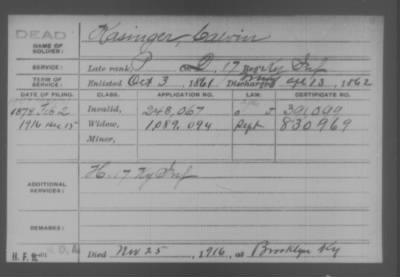 DEAD
NAME OF SOLDIER:
Kasinger, Calvin
SERVICE:
Late rank P Co. D, 17 Reg't Ky Inf
TERM OF SERVICE:
Enlisted Oct 3, 1861 Discharged Apr 13, 1862
DATE OF FILING. CLASS. APPLICATION NO. LAW. CERTIFICATE NO.
1878 Feb 2 Invalid, 248,067 391099
1916 Dec 15 Widow, 1,089,094 Sept 830969
Minor,
ADDITIONAL SERVICES:
H. 17 Ky Inf
REMARKS:
Died Nov 25, 1916, at Brooklyn Ky